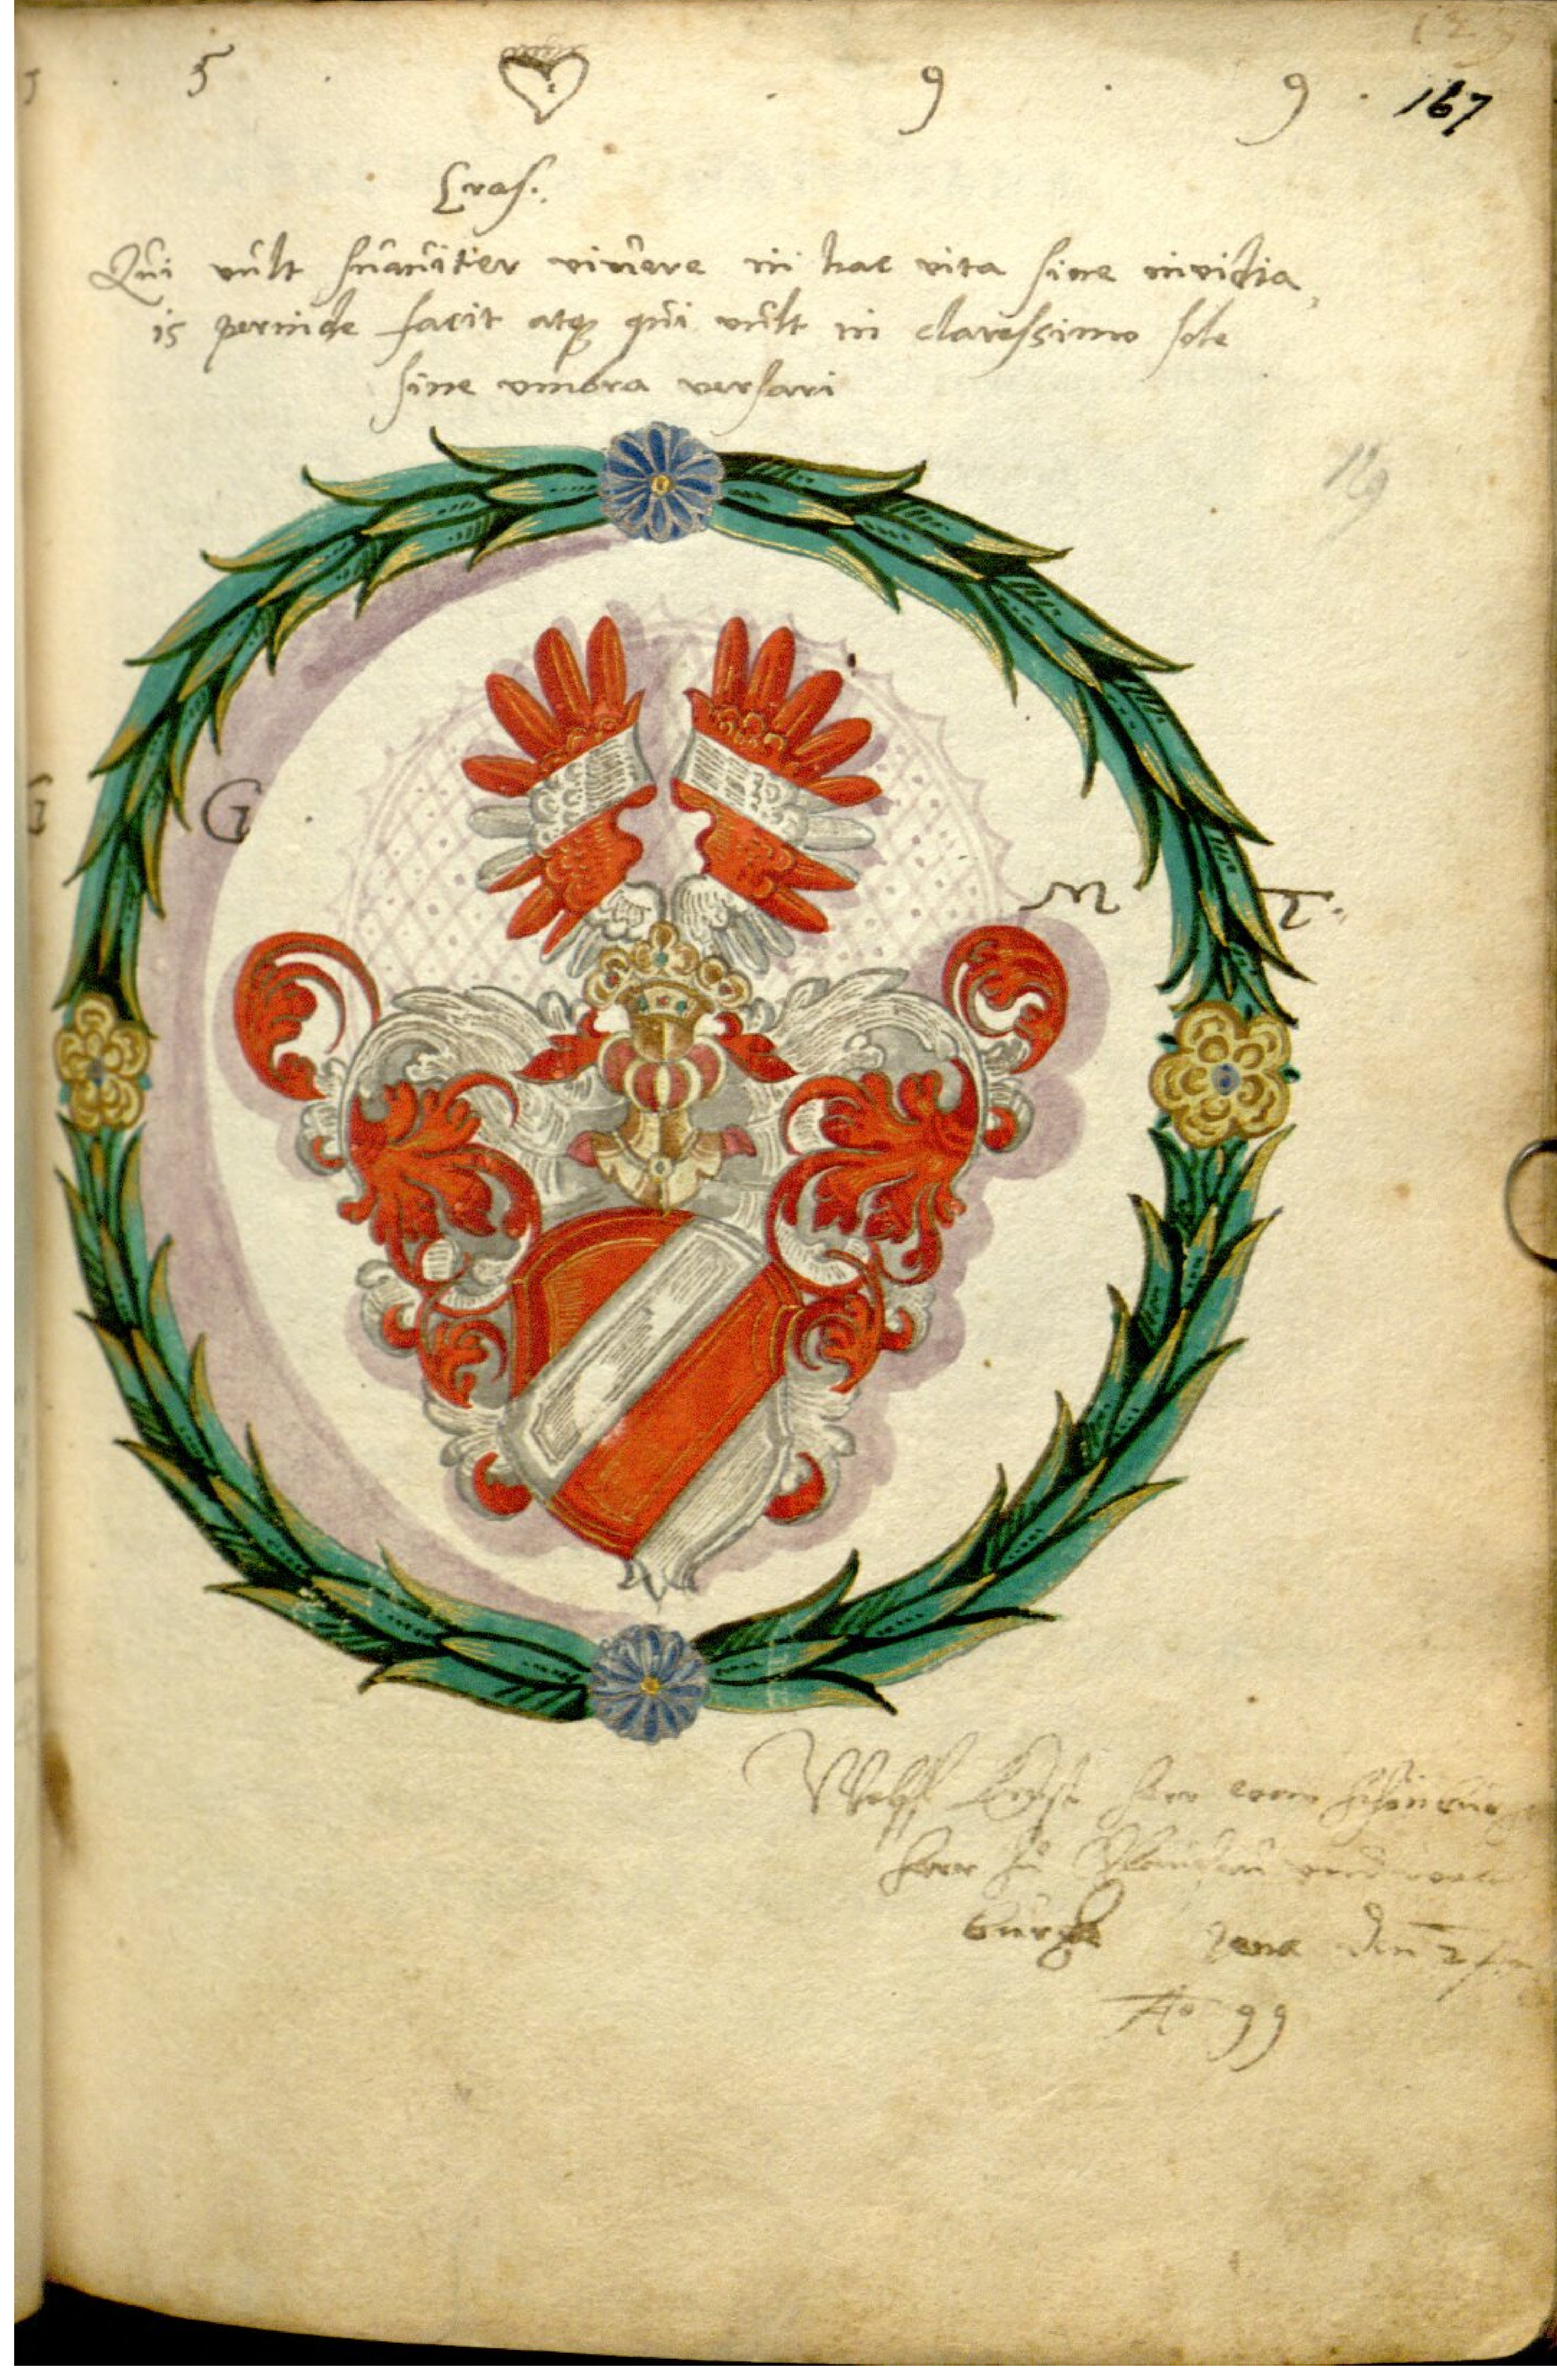 5 . 9 . 9 . 167
Eras:
Qui vult suauiter viuere in hac vita sine invidia,
is perinde facit atq qui vult in clarissimo sole
sine vmbra versari
129
G M T.
Wolff Ernst herr vonn Schönburg
herr zu Glauchau vnd
burgk Jena den
Ao 99